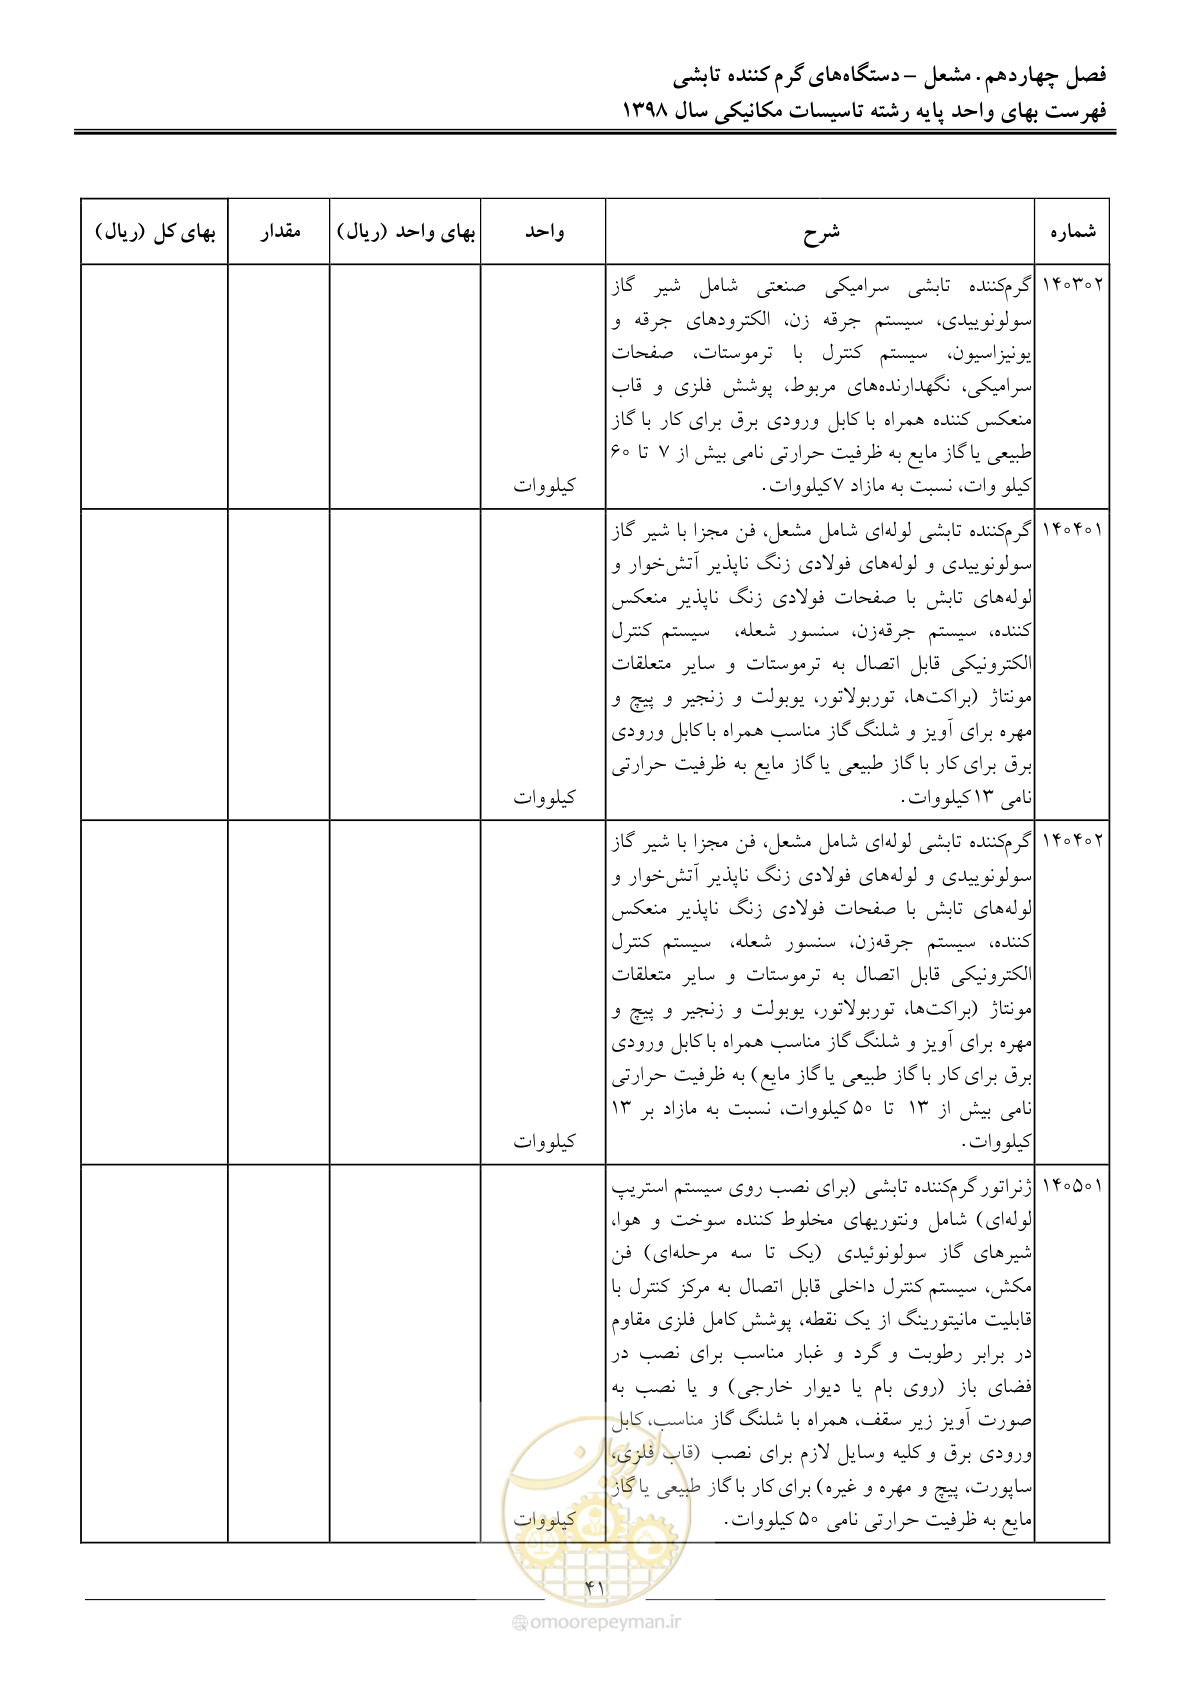 فصل چهاردهم . مشعل – دستگاه‌های گرم کننده تابشی
فهرست بهای واحد پایه رشته تاسیسات مکانیکی سال ۱۳۹۸
شماره شرح واحد بهای واحد (ریال) مقدار بهای کل (ریال)
۱۴۰۳۰۲ گرم‌کننده تابشی سرامیکی صنعتی شامل شیر گاز
سولونوییدی، سیستم جرقه زن، الکترودهای جرقه و
یونیزاسیون، سیستم کنترل با ترموستات، صفحات
سرامیکی، نگهدارنده‌های مربوط، پوشش فلزی و قاب
منعکس کننده همراه با کابل ورودی برق برای کار با گاز
طبیعی یا گاز مایع به ظرفیت حرارتی نامی بیش از ۷ تا ۶۰
کیلو وات، نسبت به مازاد ۷کیلووات. کیلووات
۱۴۰۴۰۱ گرم‌کننده تابشی لوله‌ای شامل مشعل، فن مجزا با شیر گاز
سولونوییدی و لوله‌های فولادی زنگ ناپذیر آتش‌خوار و
لوله‌های تابش با صفحات فولادی زنگ ناپذیر منعکس
کننده، سیستم جرقه‌زن، سنسور شعله، سیستم کنترل
الکترونیکی قابل اتصال به ترموستات و سایر متعلقات
مونتاژ (براکت‌ها، توربولاتور، یوبولت و زنجیر و پیچ و
مهره برای آویز و شلنگ گاز مناسب همراه با کابل ورودی
برق برای کار با گاز طبیعی یا گاز مایع به ظرفیت حرارتی
نامی ۱۳کیلووات. کیلووات
۱۴۰۴۰۲ گرم‌کننده تابشی لوله‌ای شامل مشعل، فن مجزا با شیر گاز
سولونوییدی و لوله‌های فولادی زنگ ناپذیر آتش‌خوار و
لوله‌های تابش با صفحات فولادی زنگ ناپذیر منعکس
کننده، سیستم جرقه‌زن، سنسور شعله، سیستم کنترل
الکترونیکی قابل اتصال به ترموستات و سایر متعلقات
مونتاژ (براکت‌ها، توربولاتور، یوبولت و زنجیر و پیچ و
مهره برای آویز و شلنگ گاز مناسب همراه با کابل ورودی
برق برای کار با گاز طبیعی یا گاز مایع) به ظرفیت حرارتی
نامی بیش از ۱۳ تا ۵۰ کیلووات، نسبت به مازاد بر ۱۳
کیلووات. کیلووات
۱۴۰۵۰۱ ژنراتور گرم‌کننده تابشی (برای نصب روی سیستم استریپ
لوله‌ای) شامل ونتوریهای مخلوط کننده سوخت و هوا،
شیرهای گاز سولونوئیدی (یک تا سه مرحله‌ای) فن
مکش، سیستم کنترل داخلی قابل اتصال به مرکز کنترل با
قابلیت مانیتورینگ از یک نقطه، پوشش کامل فلزی مقاوم
در برابر رطوبت و گرد و غبار مناسب برای نصب در
فضای باز (روی بام یا دیوار خارجی) و یا نصب به
صورت آویز زیر سقف، همراه با شلنگ گاز مناسب، کابل
ورودی برق و کلیه وسایل لازم برای نصب (قاب فلزی،
ساپورت، پیچ و مهره و غیره) برای کار با گاز طبیعی یا گاز
مایع به ظرفیت حرارتی نامی ۵۰ کیلووات. کیلووات
امور پیمان
۴۱
omoorepeyman.ir